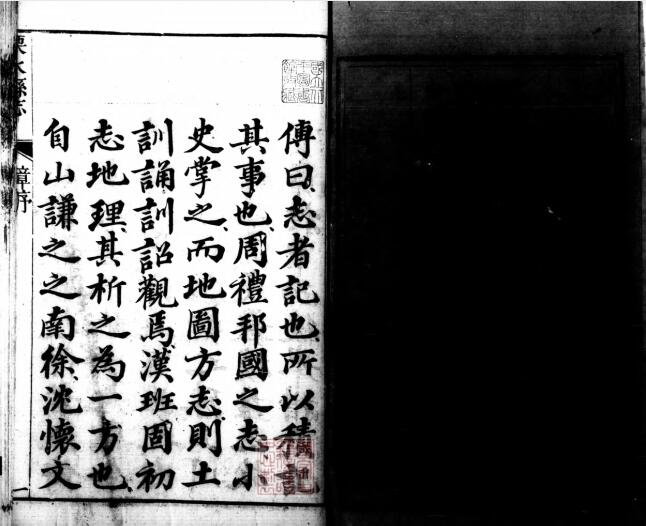 傳曰志者記也所以積記
其事也周禮邦國之志小
史掌之而地圖方志則土
訓誦訓詔觀焉漢班固初
志地理其析之為一方也
自山謙之之南徐沈懷文
溧水縣志
序